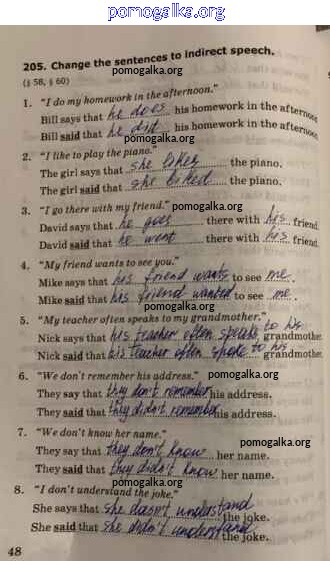 pomogalka.org
205. Change the sentences to indirect speech.
pomogalka.org
(§ 58, § 60)
1. "I do my homework in the afternoon."
Bill says that he does his homework in the afternoon
Bill said that he did his homework in the afternoon
pomogalka.org
2. "I like to play the piano."
The girl says that she likes the piano.
The girl said that she liked the piano.
3. "I go there with my friend." pomogalka.org
David says that he goes there with his friend
David said that he went there with his friend
4. "My friend wants to see you." pomogalka.org
Mike says that his friend wants to see me.
Mike said that his friend wanted to see me.
5. "My teacher often speaks to my grandmother." pomogalka.org
Nick says that his teacher often speaks to his grandmother
Nick said that his teacher often spoke to his grandmothe
6. "We don't remember his address." pomogalka.org
They say that they don't remember his address.
They said that they didn't remember his address.
7. "We don't know her name."
pomogalka.org
They say that they don't know her name.
They said that they didn't know her name.
pomogalka.org
8. "I don't understand the joke."
She says that she doesn't understand the joke.
She said that she didn't understand the joke.
48
pomogalka.org